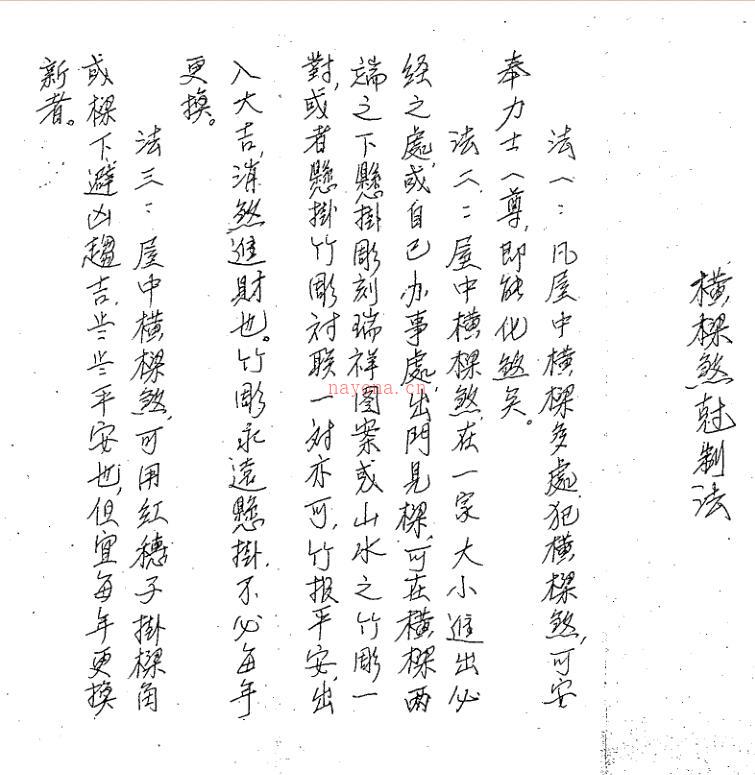 橫樑煞尅制法
法一：凡屋中橫樑多處犯橫樑煞，可安
奉力士一尊，即能化煞矣。
法二：屋中橫樑煞在一家大小進出必
经之處，或自己办事處，出門見樑，可在橫樑两
端之下懸掛彫刻瑞祥图案或山水之竹彫一
對，或者懸掛竹彫对联一对亦可，竹报平安，出
入大吉，消煞進財也。竹彫永遠懸掛，不必每年
更換。
法三：屋中橫樑煞，可用紅穗子掛樑角
或樑下，避凶趨吉，岁岁平安也，但宜每年更換
新者。
nayona.cn